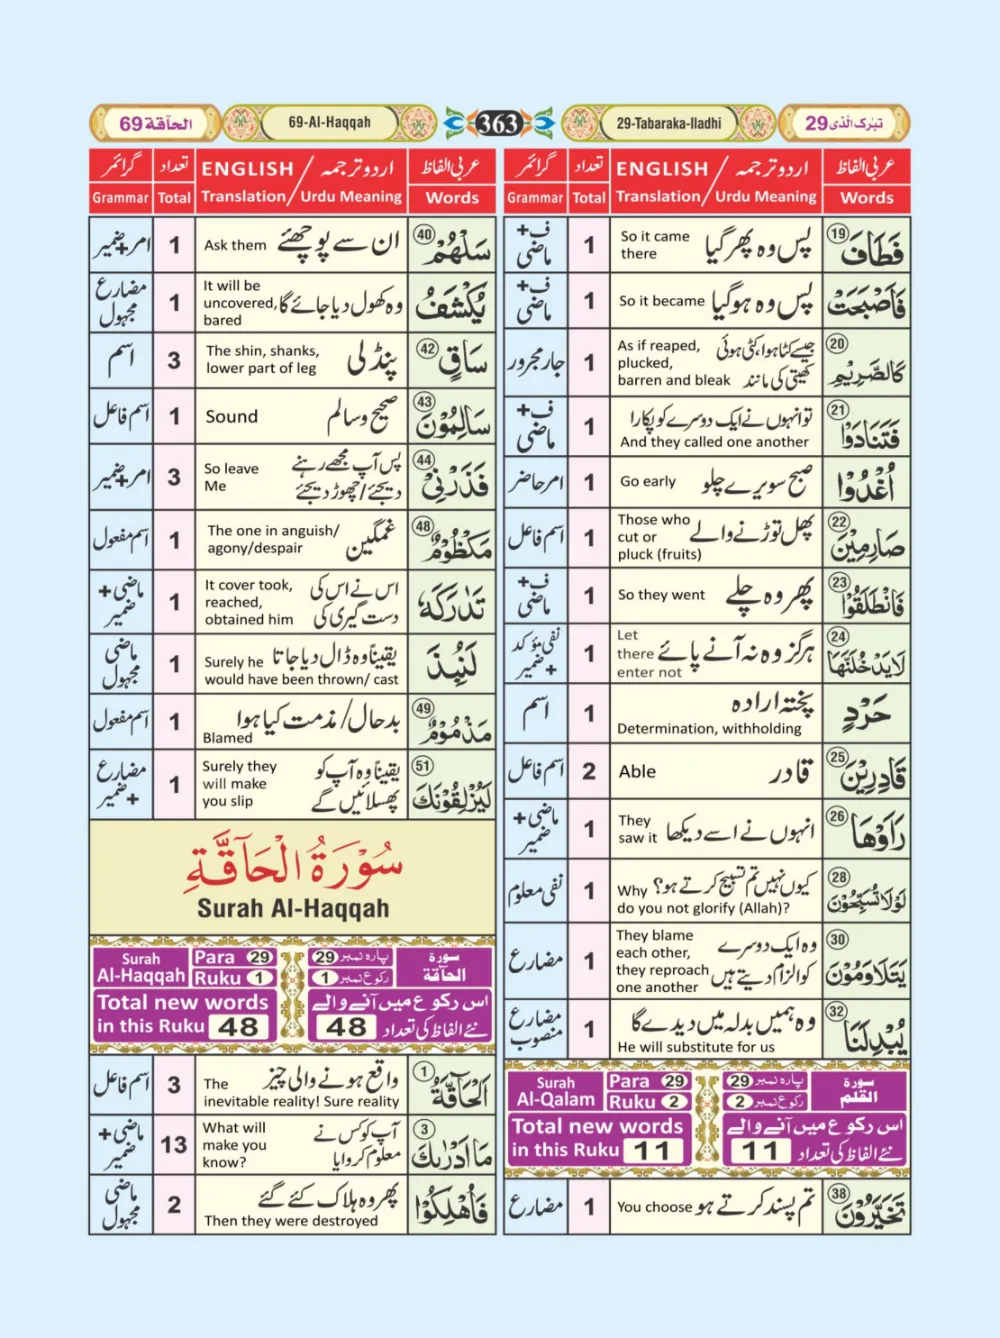 الحآقة 69
69-Al-Haqqah
363
29-Tabaraka-lladhi
تبٰرک الّذی 29
عربی الفاظ
اردو ترجمہ / ENGLISH
تعداد
گرائمر
Words
Translation / Urdu Meaning
Total
Grammar
19 فَطَافَ
پس وہ پھر گیا
So it came
there
1
ف+
ماضی
فَاَصْبَحَتْ
پس وہ ہوگیا
So it became
1
ف+
ماضی
20 كَالصَّرِيْمِ
جیسے کٹا ہوا، کٹی ہوئی
کھیتی کی مانند
As if reaped,
plucked,
barren and bleak
1
جار مجرور
21 فَتَنَادَوْا
تو انہوں نے ایک دوسرے کو پکارا
And they called one another
1
ف+
ماضی
اُغْدُوْا
صبح سویرے چلو
Go early
1
امر حاضر
22 صَارِمِيْنَ
پھل توڑنے والے
Those who
cut or
pluck (fruits)
1
اسم فاعل
23 فَانْطَلَقُوْا
پھر وہ چلے
So they went
1
ف+
ماضی
24 لَا يَدْخُلَنَّهَا
ہرگز وہ نہ آنے پائے
Let
there
enter not
1
نفی مؤکد
+ ضمیر
حَرْدٍ
پختہ ارادہ
Determination, withholding
1
اسم
25 قَادِرِيْنَ
قادر
Able
2
اسم فاعل
26 رَاَوْهَا
انہوں نے اسے دیکھا
They
saw it
1
ماضی+
ضمیر
28 لَوْلَا تُسَبِّحُوْنَ
کیوں نہیں تم تسبیح کرتے ہو؟
Why
do you not glorify (Allah)?
1
نفی معلوم
30 يَتَلَاوَمُوْنَ
وہ ایک دوسرے
کو الزام دیتے ہیں
They blame
each other,
they reproach
one another
1
مضارع
32 يُبْدِلَنَا
وہ ہمیں بدلہ میں دیدے گا
He will substitute for us
1
مضارع
منصوب
Surah
Al-Qalam
Para 29
Ruku 2
پارہ نمبر 29
رکوع نمبر 2
سورۃ
القلم
Total new words
in this Ruku 11
اس رکوع میں آنے والے
نئے الفاظ کی تعداد 11
38 تَخَيَّرُوْنَ
تم پسند کرتے ہو
You choose
1
مضارع
عربی الفاظ
اردو ترجمہ / ENGLISH
تعداد
گرائمر
Words
Translation / Urdu Meaning
Total
Grammar
40 سَلْهُمْ
ان سے پوچھئے
Ask them
1
امر+ضمیر
يُكْشَفُ
وہ کھول دیا جائے گا
It will be
uncovered,
bared
1
مضارع
مجہول
42 سَاقٍ
پنڈلی
The shin, shanks,
lower part of leg
3
اسم
43 سَالِمُوْنَ
صحیح و سالم
Sound
1
اسم فاعل
44 فَذَرْنِيْ
پس آپ مجھے رہنے
دیجئے/چھوڑ دیجئے
So leave
Me
3
امر+ضمیر
48 مَكْظُوْمٌ
غمگین
The one in anguish/
agony/despair
1
اسم مفعول
تَدَارَكَهٗ
اس نے اس کی
دست گیری کی
It cover took,
reached,
obtained him
1
ماضی+
ضمیر
لَنُبِذَ
یقیناً وہ ڈال دیا جاتا
Surely he
would have been thrown/ cast
1
ماضی
مجہول
49 مَذْمُوْمٌ
بدحال/ مذمت کیا ہوا
Blamed
1
اسم مفعول
51 لَيُزْلِقُوْنَكَ
یقیناً وہ آپ کو
پھسلائیں گے
Surely they
will make
you slip
1
مضارع
+ ضمیر
سُوْرَةُ الْحَآقَّةِ
Surah Al-Haqqah
Surah
Al-Haqqah
Para 29
Ruku 1
پارہ نمبر 29
رکوع نمبر 1
سورۃ
الحآقة
Total new words
in this Ruku 48
اس رکوع میں آنے والے
نئے الفاظ کی تعداد 48
1 اَلْحَآقَّةُ
واقع ہونے والی چیز
The
inevitable reality! Sure reality
3
اسم فاعل
3 مَا اَدْرٰىكَ
آپ کو کس نے
معلوم کروایا
What will
make you
know?
13
ماضی+
ضمیر
فَاُهْلِكُوْا
پھر وہ ہلاک کئے گئے
Then they were destroyed
2
ماضی
مجہول